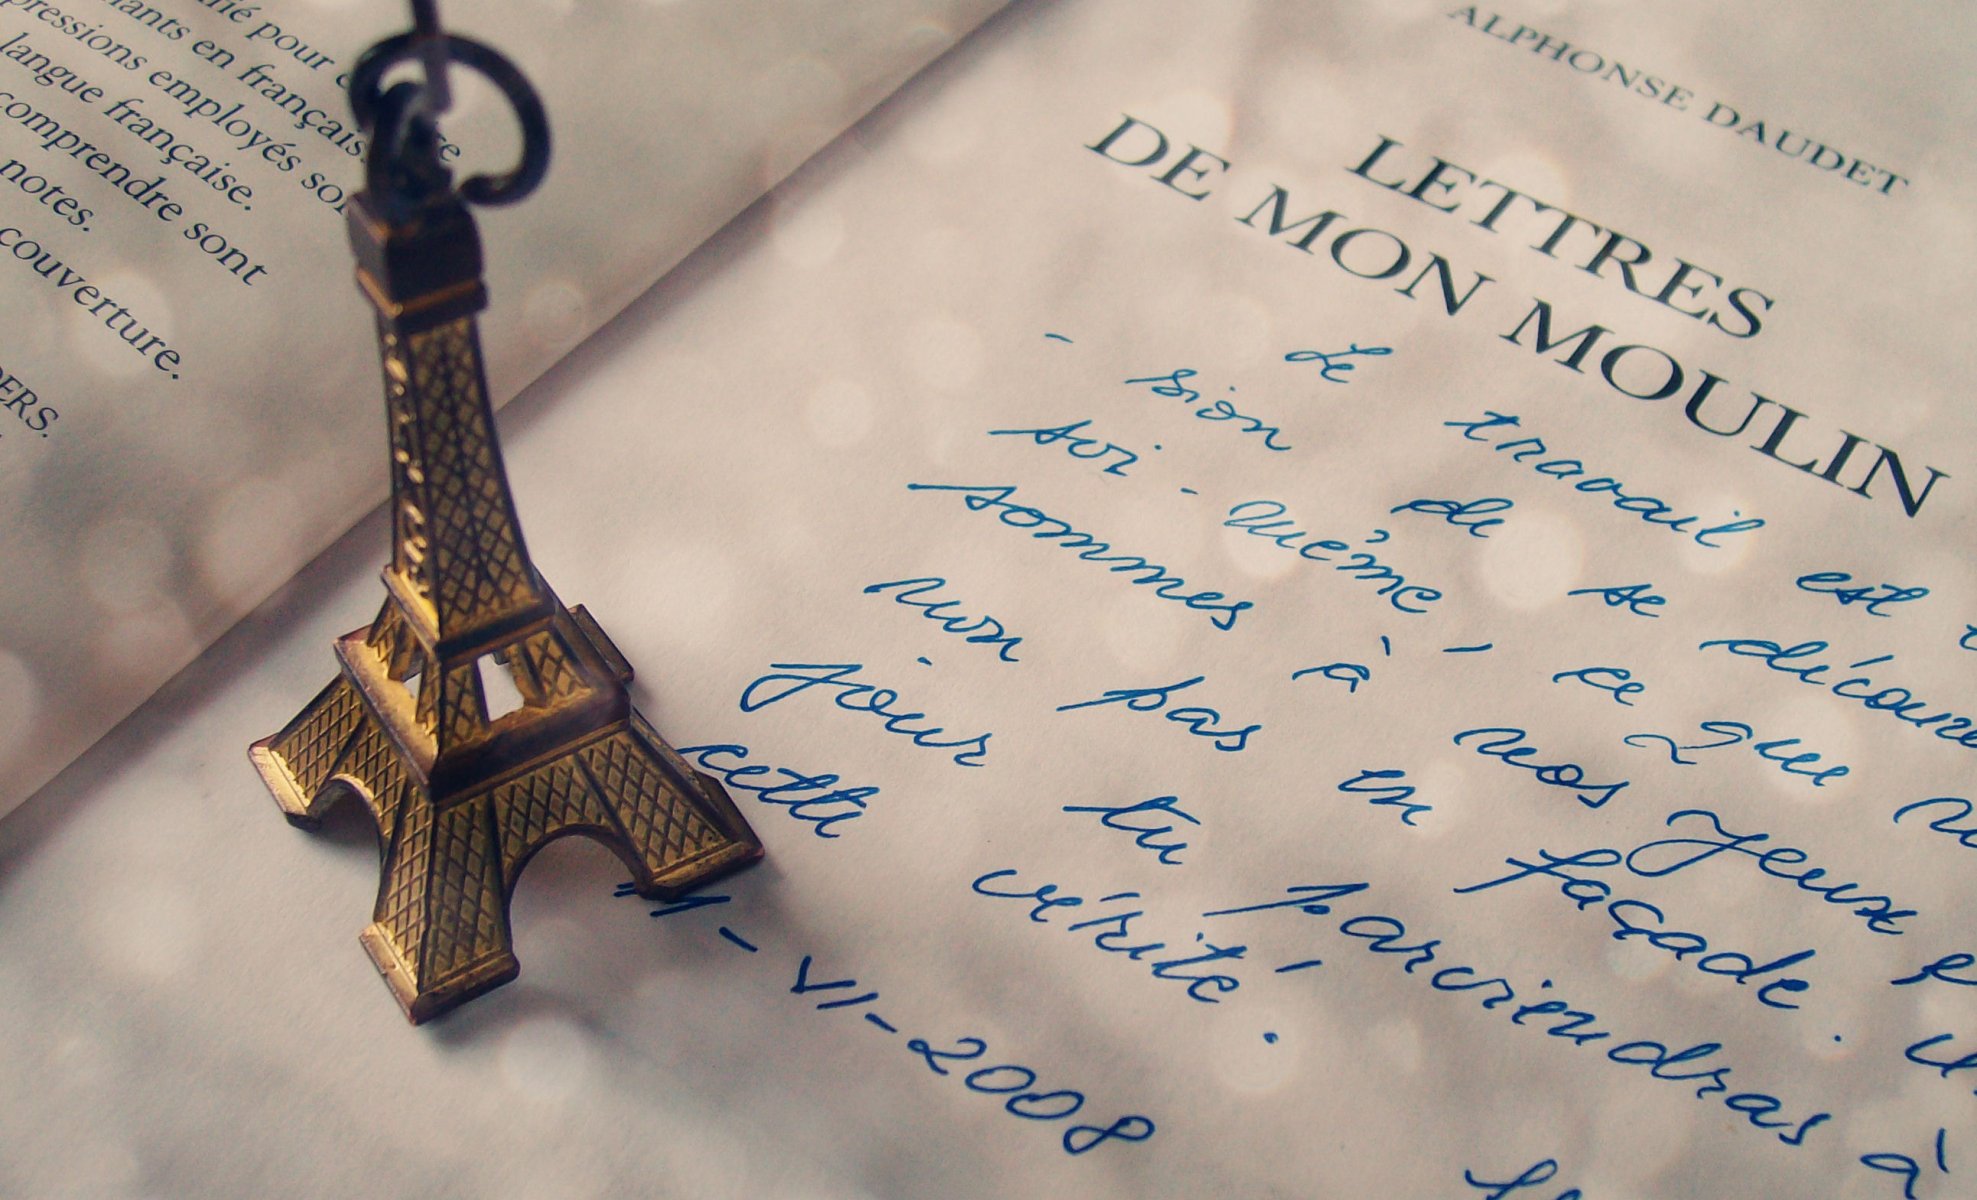 ié pour
ants en français.
pressions employés so
langue française.
comprendre sont
notes.
couverture.
DERS.
ALPHONSE DAUDET
LETTRES
DE MON MOULIN
Le travail est
- sion de se découvr
soi-même, ce que
sommes à nos yeux
non pas en façade.
jour tu parviendras à
cette vérité.
VII-2008